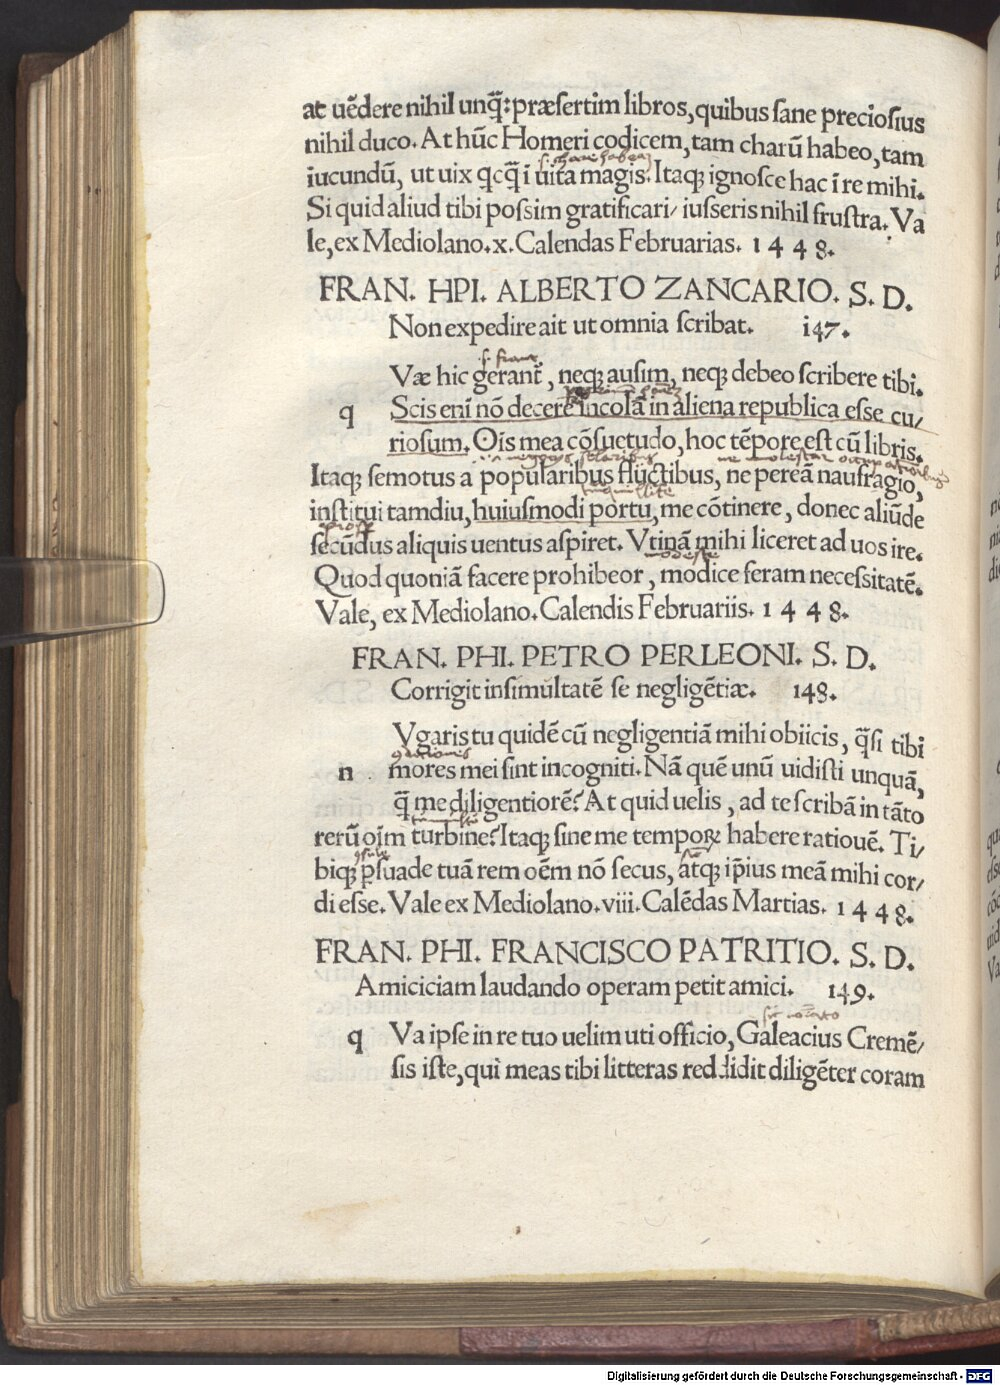 at uēdere nihil unq̄: præsertim libros, quibus sane preciosius
nihil duco. At hūc Homeri codicem, tam charū habeo, tam
iucundū, ut uix qcq̄ ī uita magis. Itaqꝫ ignosce hac ī re mihi.
Si quid aliud tibi possim gratificari/ iusseris nihil frustra. Va
le, ex Mediolano. x. Calendas Februarias. 1448.
FRAN. HPI. ALBERTO ZANCARIO. S. D.
Non expedire ait ut omnia scribat. 147.
Væ hic gerant̄, neqꝫ ausim, neqꝫ debeo scribere tibi.
q Scis enī nō decere incolā in aliena republica esse cu/
riosum. Oīs mea cōsuetudo, hoc tēpore est cū libris.
Itaqꝫ semotus a popularibus fluctibus, ne pereā naufragio,
institui tamdiu, huiusmodi portu, me cōtinere, donec aliūde
secūdus aliquis uentus aspiret. Vtinā mihi liceret ad uos ire.
modeste
Quod quoniā facere prohibeor, modice feram necessitatē.
Vale, ex Mediolano. Calendis Februariis. 1448.
FRAN. PHI. PETRO PERLEONI. S. D.
Corrigit insimultatē se negligētiæ. 148.
Vgaris tu quidē cū negligentiā mihi obiicis, q̄si tibi
n mores mei sint incogniti. Nā quē unū uidisti unquā,
q̄ me diligentiorē? At quid uelis, ad te scribā in tāto
rerū oīm turbine? Itaqꝫ sine me temporꝝ habere rationē. Ti/
biqꝫ ꝑsuade tuā rem oēm nō secus, atqꝫ ip̄ius meā mihi cor/
di esse. Vale ex Mediolano. viii. Calēdas Martias. 1448.
FRAN. PHI. FRANCISCO PATRITIO. S. D.
Amiciciam laudando operam petit amici. 149.
q Va ipse in re tuo uelim uti officio, Galeacius Cremē/
sis iste, qui meas tibi litteras reddidit diligēter coram
Digitalisierung gefördert durch die Deutsche Forschungsgemeinschaft - DFG